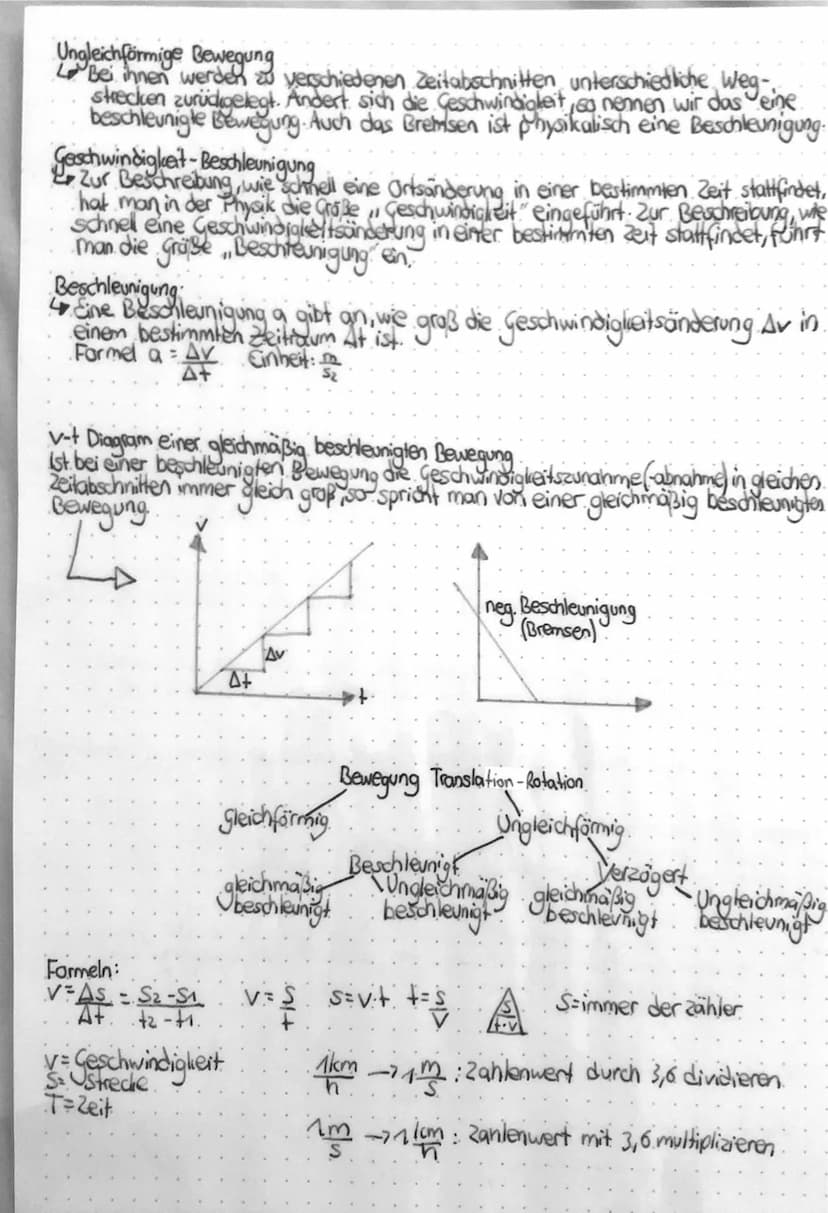 Ungleichförmige Bewegung
↳ Bei ihnen werden zu verschiedenen Zeitabschnitten unterschiedliche Weg-
strecken zurückgelegt. Ändert sich die Geschwindigkeit, so nennen wir das eine
beschleunigte Bewegung. Auch das Bremsen ist physikalisch eine Beschleunigung.
Geschwindigkeit-Beschleunigung
↳ Zur Beschreibung, wie schnell eine Ortsänderung in einer bestimmten Zeit stattfindet,
hat man in der Physik die Größe „Geschwindigkeit" eingeführt. Zur Beschreibung, wie
schnell eine Geschwindigkeitsänderung in einer bestimmten Zeit stattfindet, führt
man die Größe „Beschleunigung" ein.
Beschleunigung:
↳ Eine Beschleunigung a gibt an, wie groß die Geschwindigkeitsänderung Δv in
einem bestimmten Zeitraum Δt ist.
Formel a = Δv/Δt Einheit: m/s2
v-t Diagram einer gleichmäßig beschleunigten Bewegung
Ist bei einer beschleunigten Bewegung die Geschwindigkeitszunahme (-abnahme) in gleichen
Zeitabschnitten immer gleich groß, so spricht man von einer gleichmäßig beschleunigten
Bewegung.
v
Δv
Δt
t
neg. Beschleunigung
(Bremsen)
Bewegung Translation-Rotation
gleichförmig
Ungleichförmig
Beschleunigt
Verzögert
gleichmäßig
beschleunigt
Ungleichmäßig
beschleunigt
gleichmäßig
beschleunigt
Ungleichmäßig
beschleunigt
Formeln:
v = Δs/Δt = s2-s1/t2-t1 v = s/t s=v·t t=s/v s/t·v s=immer der zähler
v= Geschwindigkeit
s= Strecke
T=Zeit
1km/h → 1 m/s : Zahlenwert durch 3,6 dividieren
1m/s → 1 km/h : Zahlenwert mit 3,6 multiplizieren